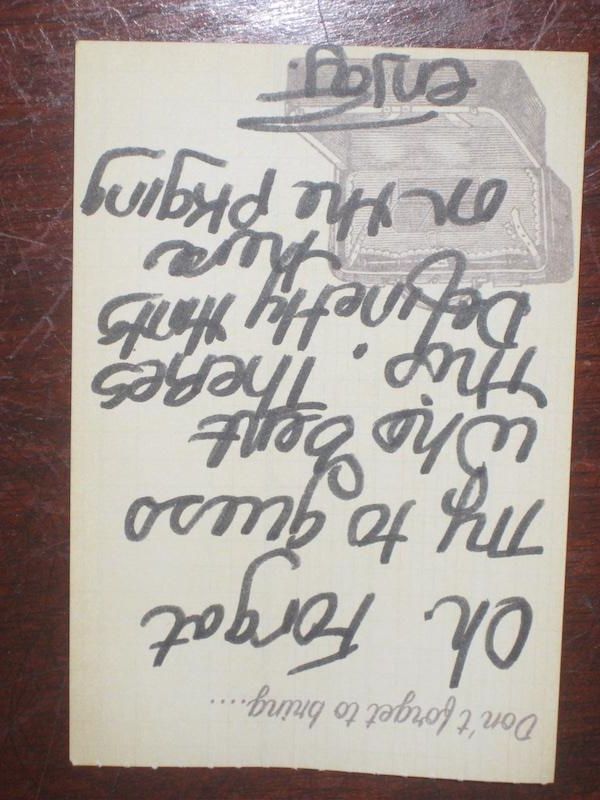 Don't forget to bring....
Oh. Forgot
Try to guess
who sent
this. TheRes
Definetly Hints
here
on the pkging
enjoy.